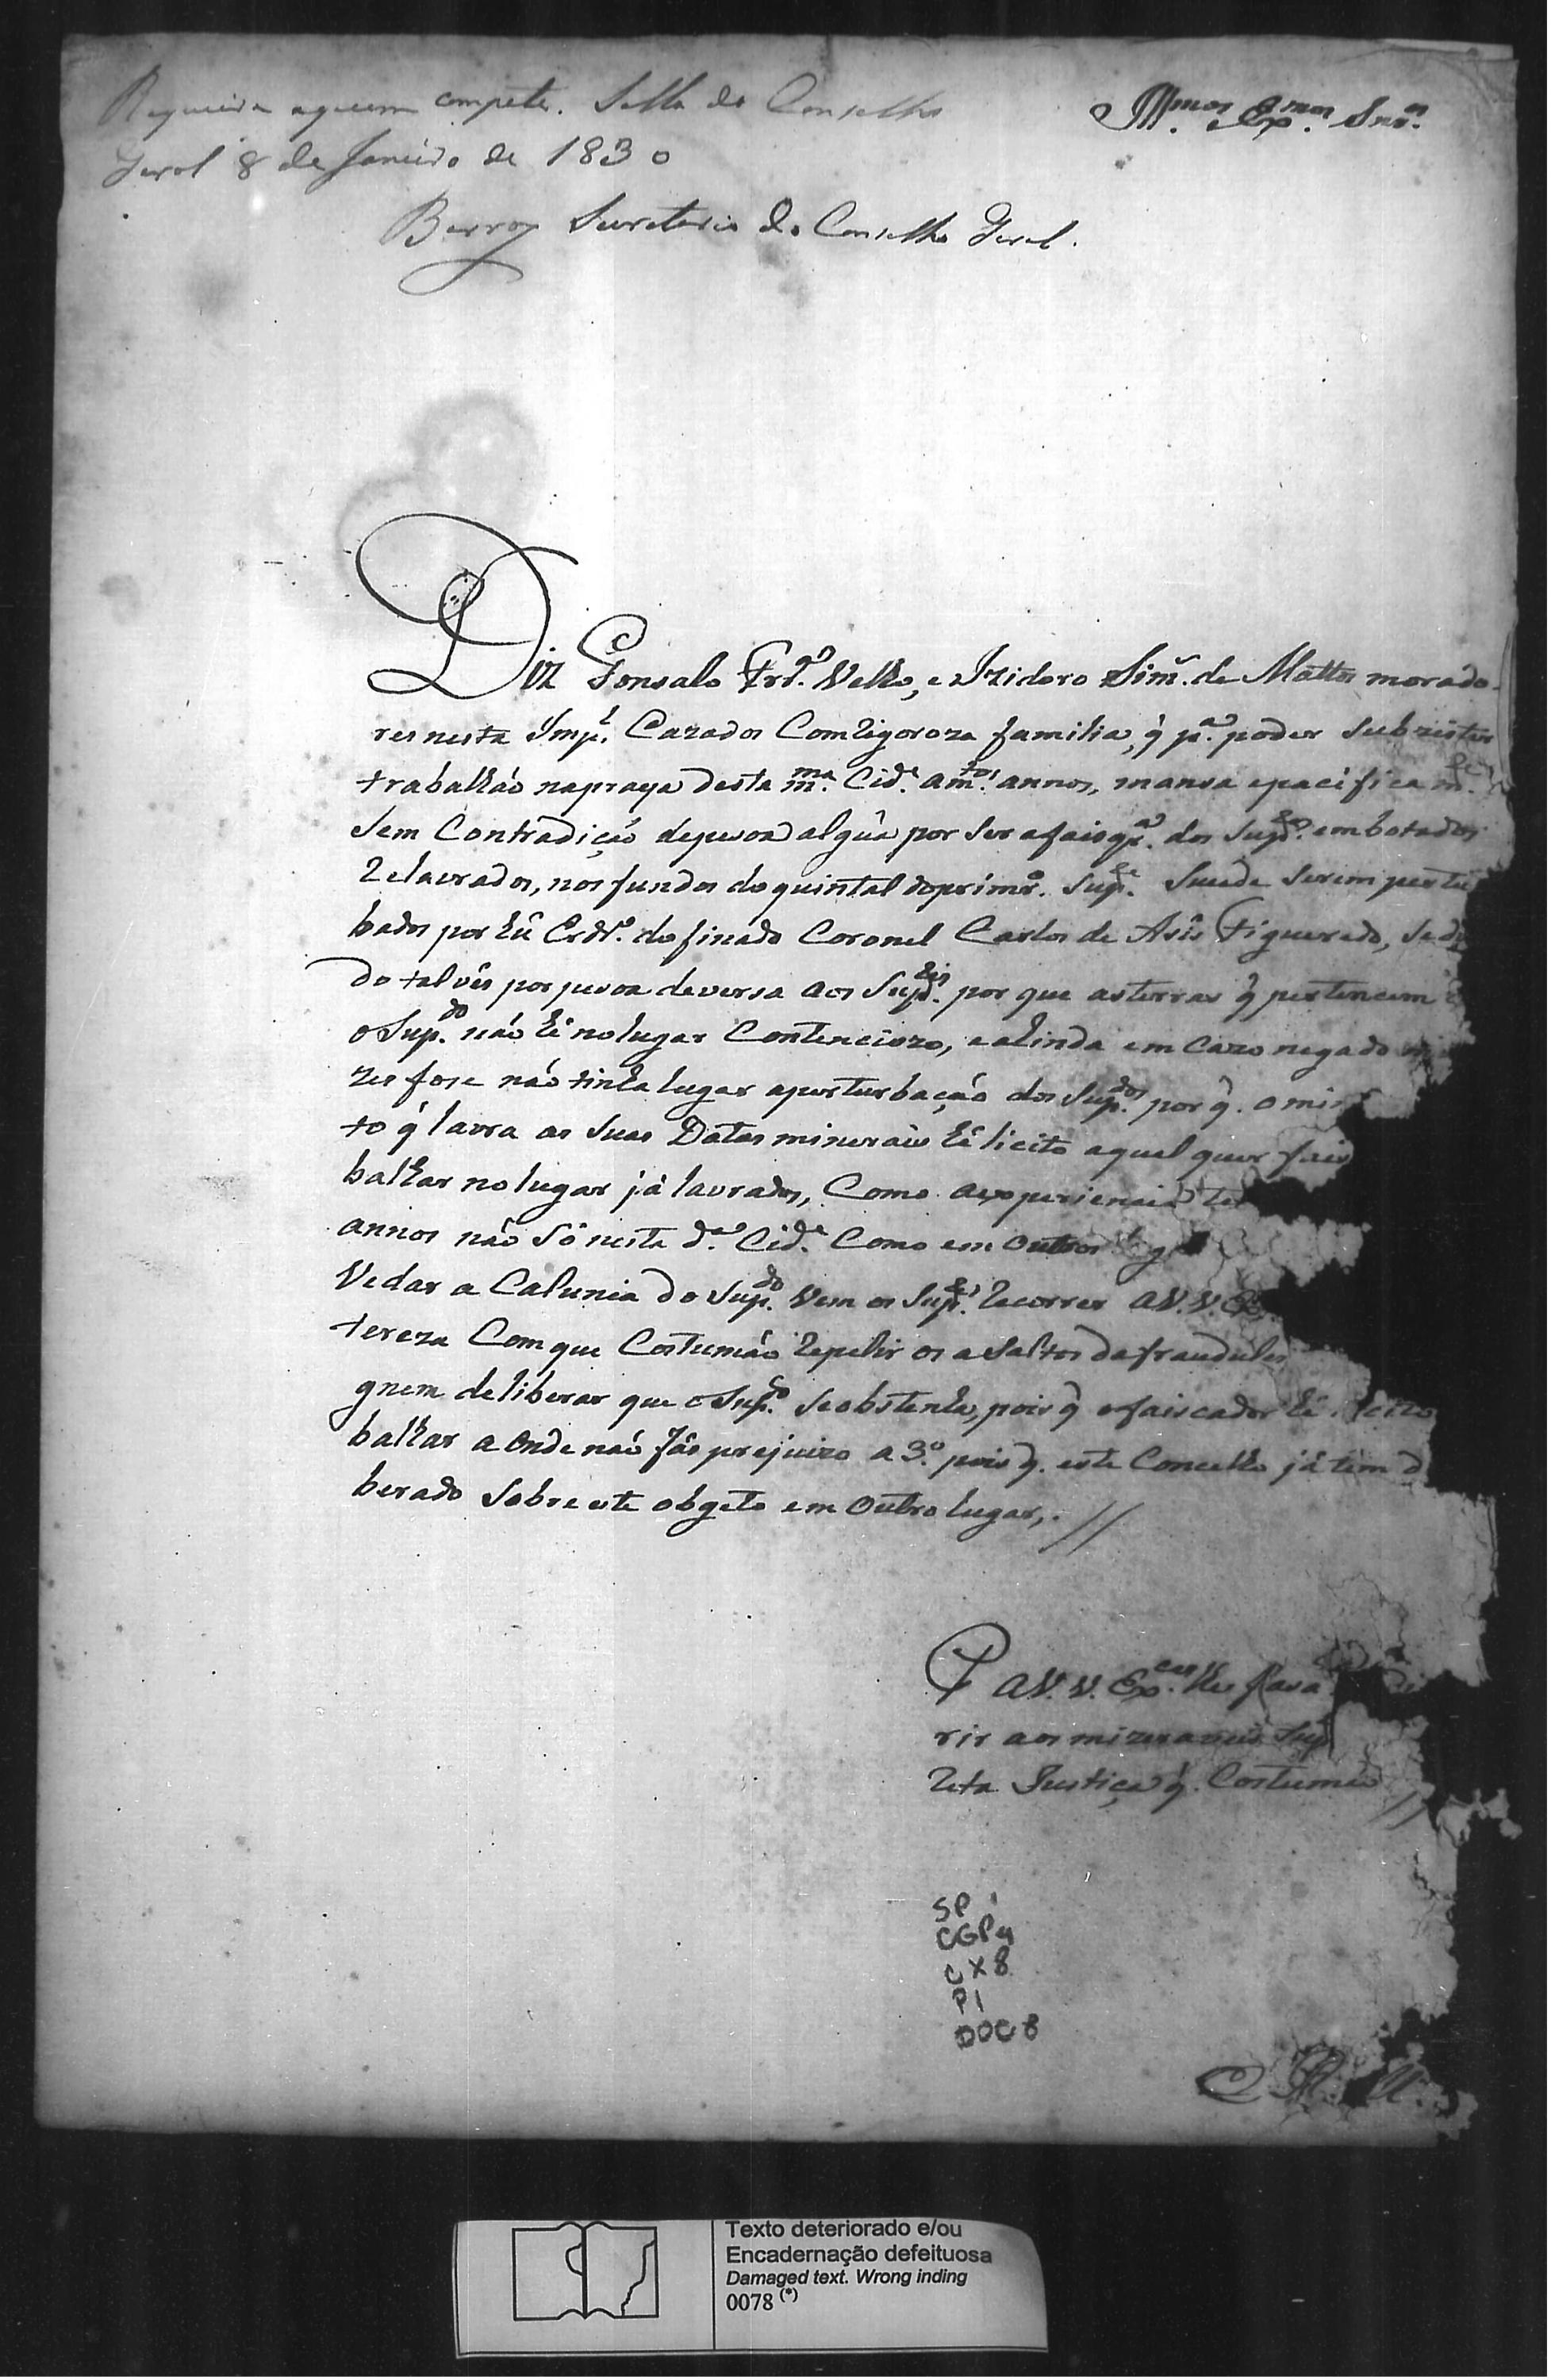 Requeira aquem compete. Salla do Conselho
Geral 8 de Janeiro de 1830
Barros Secretario do Conselho Geral.
Illmos. e Exmos. Snres.
Diz Gonsalo Frz.o Velho, e Izidoro Sim. de Mattos morado-
res nesta Imp.l Cazados Com rigoroza familia, q̃ p.a poder Subzistir
trabalhão napraya desta m.ma Cid.e am.tos annos, mansa epacifica m.te
Sem Contradição depesoa algũa por Ser afaisq.ra dos Sup.es embotados
relavrados, nos fundos doquintal doprimr.o Sup.e Sucede Serem pertu
bados por hũ Erdr.o do finado Coronel Carlos de Asis Figueredo,
do talvês por pesoa deversa aos Sup.es por que asterras q̃ pertencem
o Sup.do não hê nolugar Contenciozo, e ahinda em Cazo negado
zes fose não tinha lugar aperturbação dos Sup.dos por q̃. o min
to q̃ lavra as Suas Datas minerais hê licito aqual quer fais
balhar nolugar já lavrados, Como aexperiencia te
annos não Só nesta d.a Cid.e Como em outros
Vedar a Calunia do Sup.do Vem os Sup.es recorrer a V.V. Ex
tereza Com que Costumão repelir os asaltos dafraudules
gnem deliberar que o Sup.do Seobstenha, pois q̃ ofaiscador hê licito
balhar a Onde não fás prejuizo a 3.o pois q̃. este Concelho já tem d
berado Sobre este obgeto em Outro lugar,. //
P a V.V. Ex.cas lhes fasa
rir aos mizeraveis Sup
reta Justiça q̃. Costumão //
SP
CGP4
CX8
P1
DOC8
E R. M.
Texto deteriorado e/ou
Encadernação defeituosa
Damaged text. Wrong inding
0078 (*)